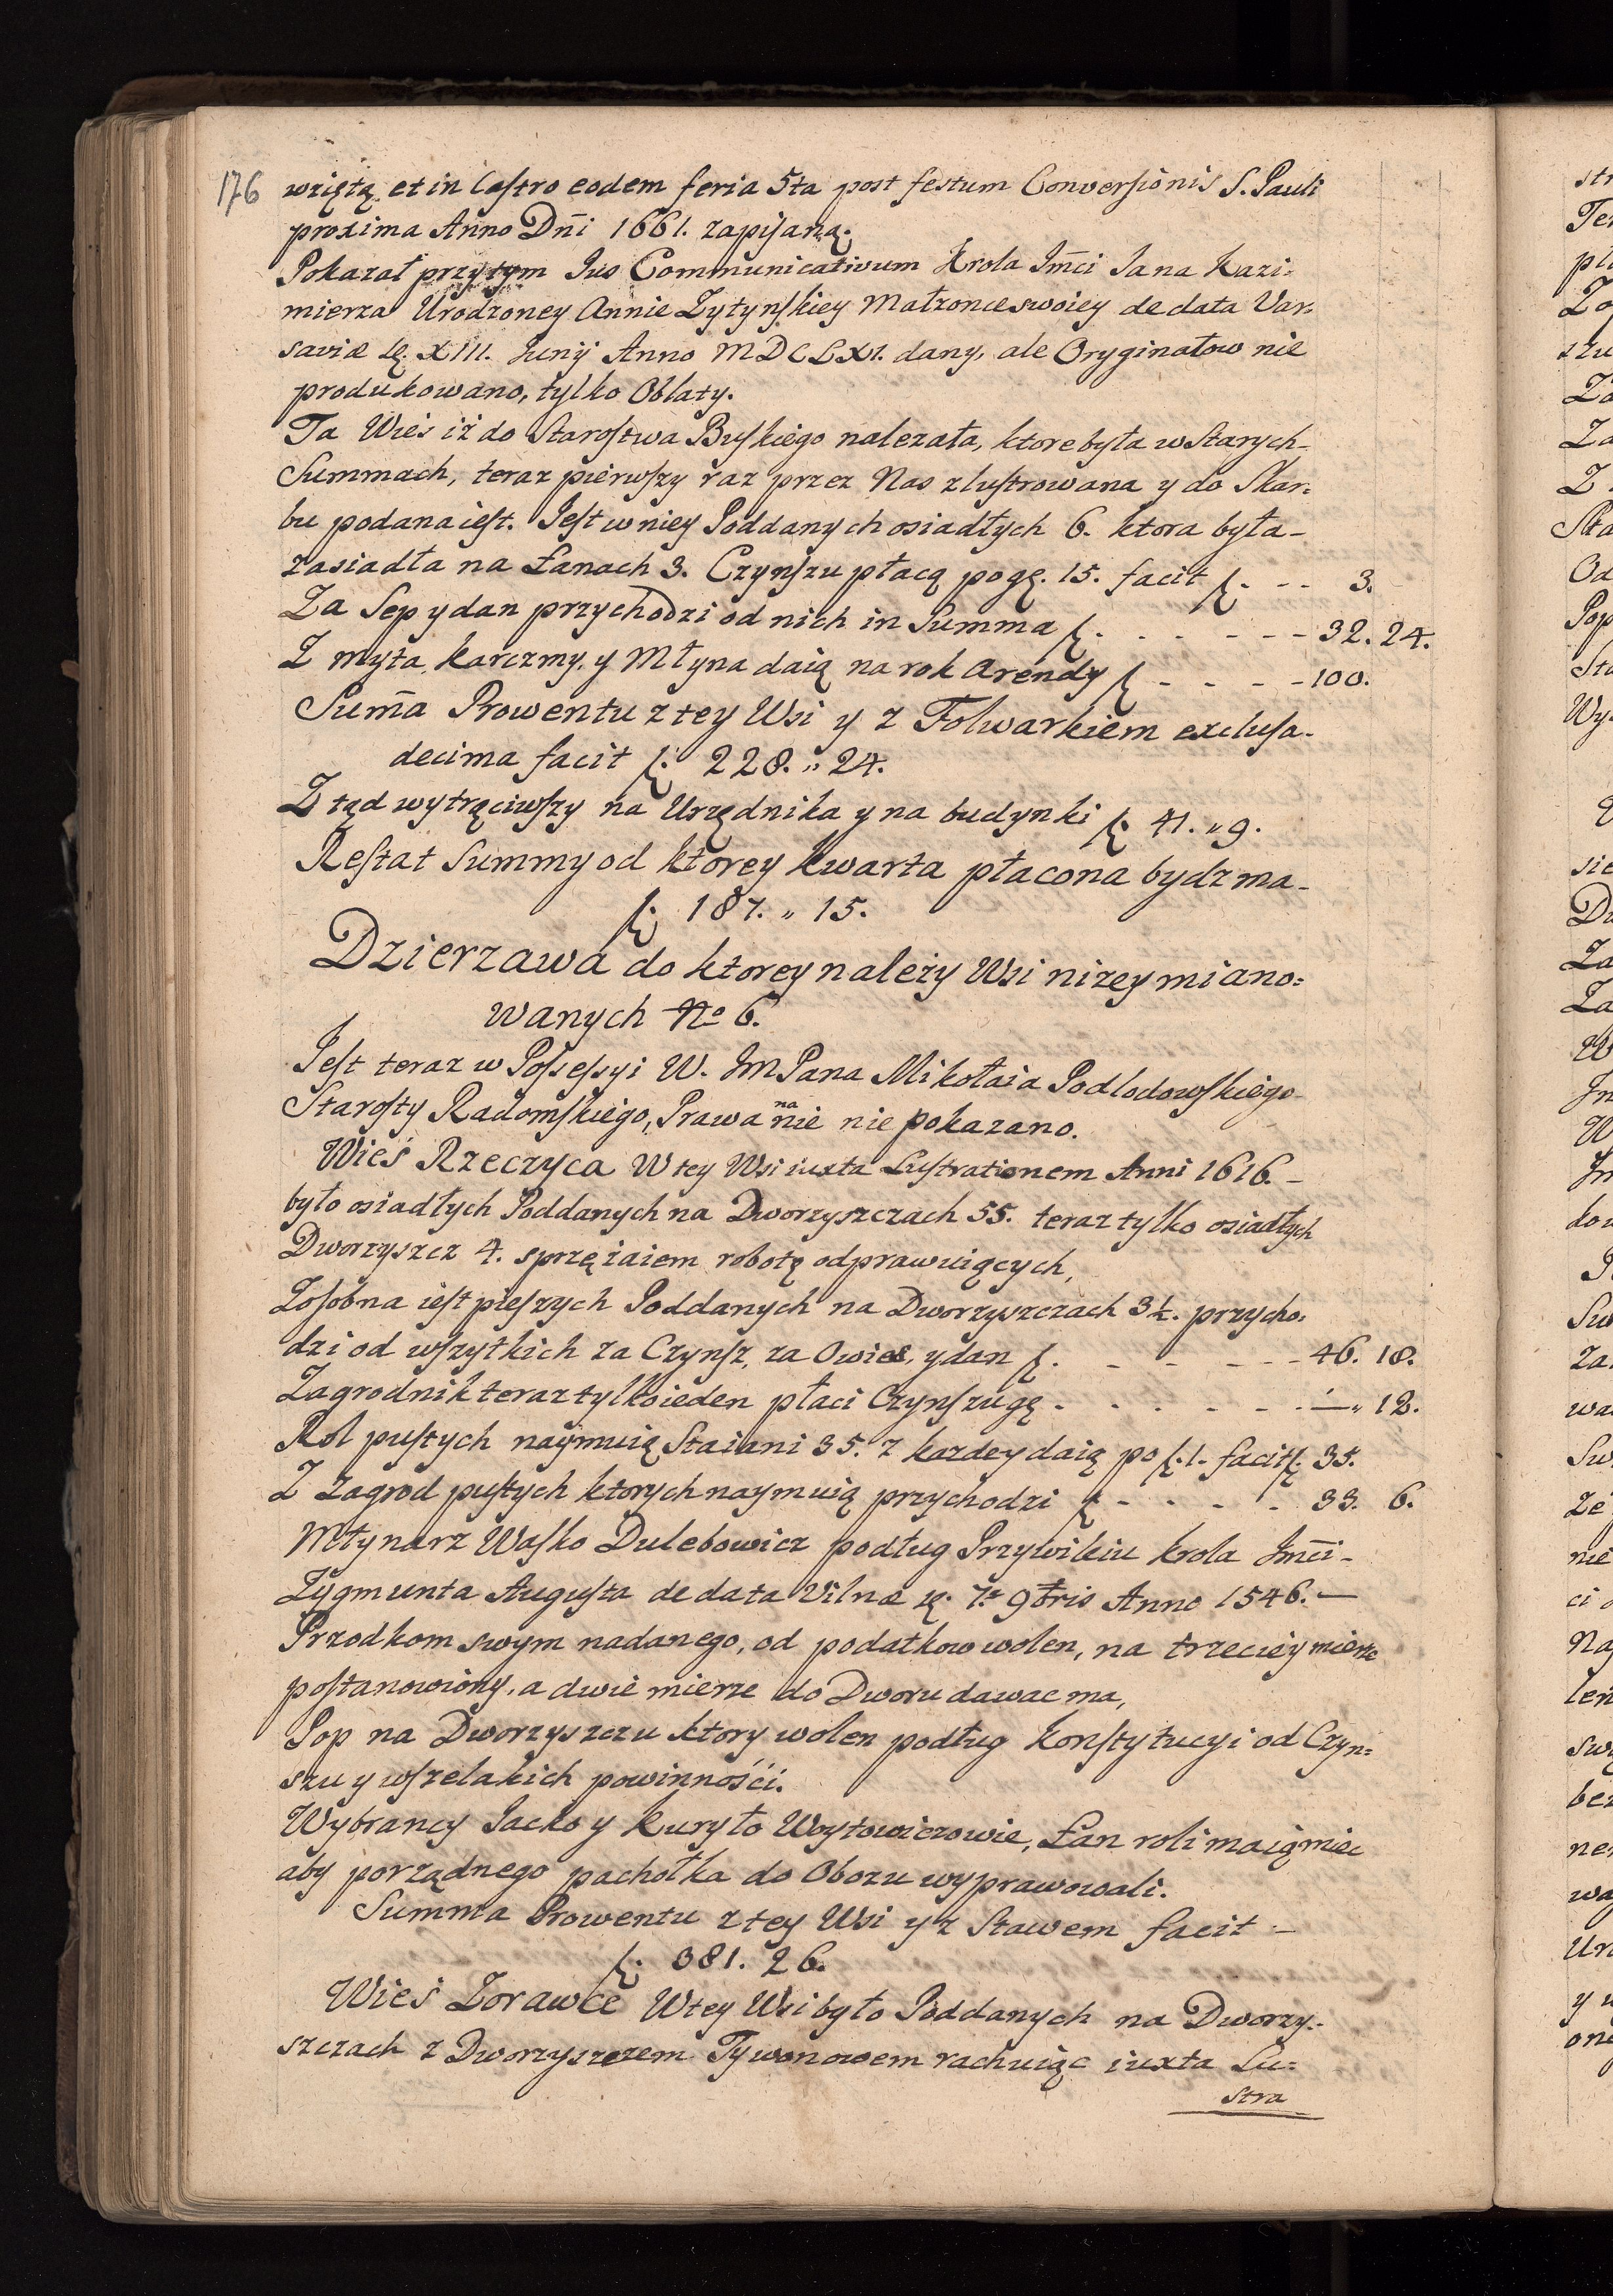 176
wziętą et in Castro eodem feria 5ta post festum Conversionis S. Pauli
proxima Anno Dn̄i 1661. zapisaną.
Pokazał przytym Jus Communicativum Krola Jm̄ci Jana Kazi:
mierza Urodzoney Annie Zytyńskiey Małzonce swoiey de data Var:
saviæ XIII. Junÿ Anno MDCLXI. dany, ale Oryginałow nie
produkowano, tylko Oblaty.
Ta Wieś iż do Starostwa Buskiego nalezała, ktore była w Starych
Summach, teraz pierwszy raz przez Nas zlustrowana y do Skar:
bu podana iest. Jest w niey Poddanych osiadłych 6. ktora była -
zasiadła na Łanach 3. Czynszu płacą po gę. 15. facit f. - - 3.
Za Sep y dan przychodzi od nich in Summa f. - - - - - 32. 24.
Z myta, karczmy, y Młyna daią na rok Arendy f - - - - 100.
Sum̄a Prowentu z tey Wsi y z Folwarkiem exclusa -
decima facit f. 228. „ 24.
Z tąd wytrąciwszy na Urzędnika y na budynki f. 41. „ 9.
Restat Summy od ktorey kwarta płacona bydz ma -
f. 187. „ 15.
Dzierzawa do ktorey należy Wsi nizey miano:
wanych No 6.
Jest teraz w Possessyi W. JmPana Mikołaia Podlodowskiego
Starosty Radomskiego, Prawa na nie nie pokazano.
Wieś Rzeczyca W tey Wsi iuxta Lustrationem Anni 1616. -
było osiadłych Poddanych na Dworzyszczach 55. teraz tylko osiadłych
Dworzyszcz 4. sprzęiaiem robotę odprawuiących,
Zosobna iest pieszych Poddanych na Dworzyszczach 3½. przycho:
dzi od wszytkich za Czynsz, za Owies, y dan f. - - - - - 46. 18.
Zagrodnik teraz tylko ieden płaci Czynszu gę - - - - - - — „ 12.
Rol pustych naymuią Staiani 35. z kazdey daią po f. 1. facit f. 35.
Z Zagrod pustych ktorych naymuią przychodzi f - - - - 33. 6.
Młynarz Wasko Dulebowicz podług Przywileiu Krola Jm̄ci -
Zygmunta Augusta de data Vilnæ 7. 9bris Anno 1546. —
Przodkom swym nadanego, od podatkow wolen, na trzeciey mierze
postanowiony, a dwie mierze do Dworu dawac ma,
Pop na Dworzyszczu ktory wolen podług Konstytucyi od Czyn:
szu y wszelakich powinnośći.
Wybrancy Jacko y Kuryło Woytowiczowie, Łan roli maią miec
aby porządnego pachołka do Obozu wyprawowali.
Summa Prowentu z tey Wsi y z Stawem facit -
f. 381. 26.
Wieś Zorawce W tey Wsi było Poddanych na Dworzy:
szczach z Dworzyszczem Tywonowem rachuiąc iuxta Lu:
stra